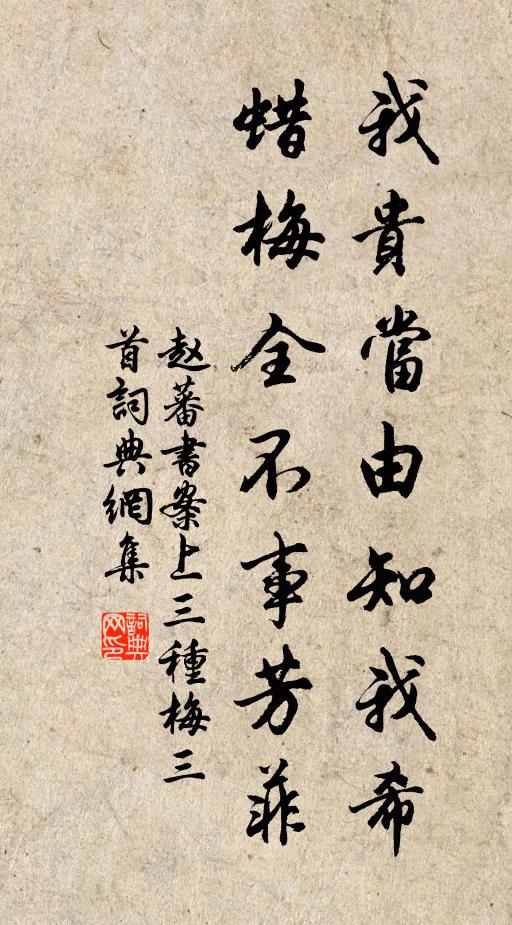 我貴當由知我希
蜡梅全不事芳菲
赵蕃書案上三種梅三
首詞典網集
詞典网印